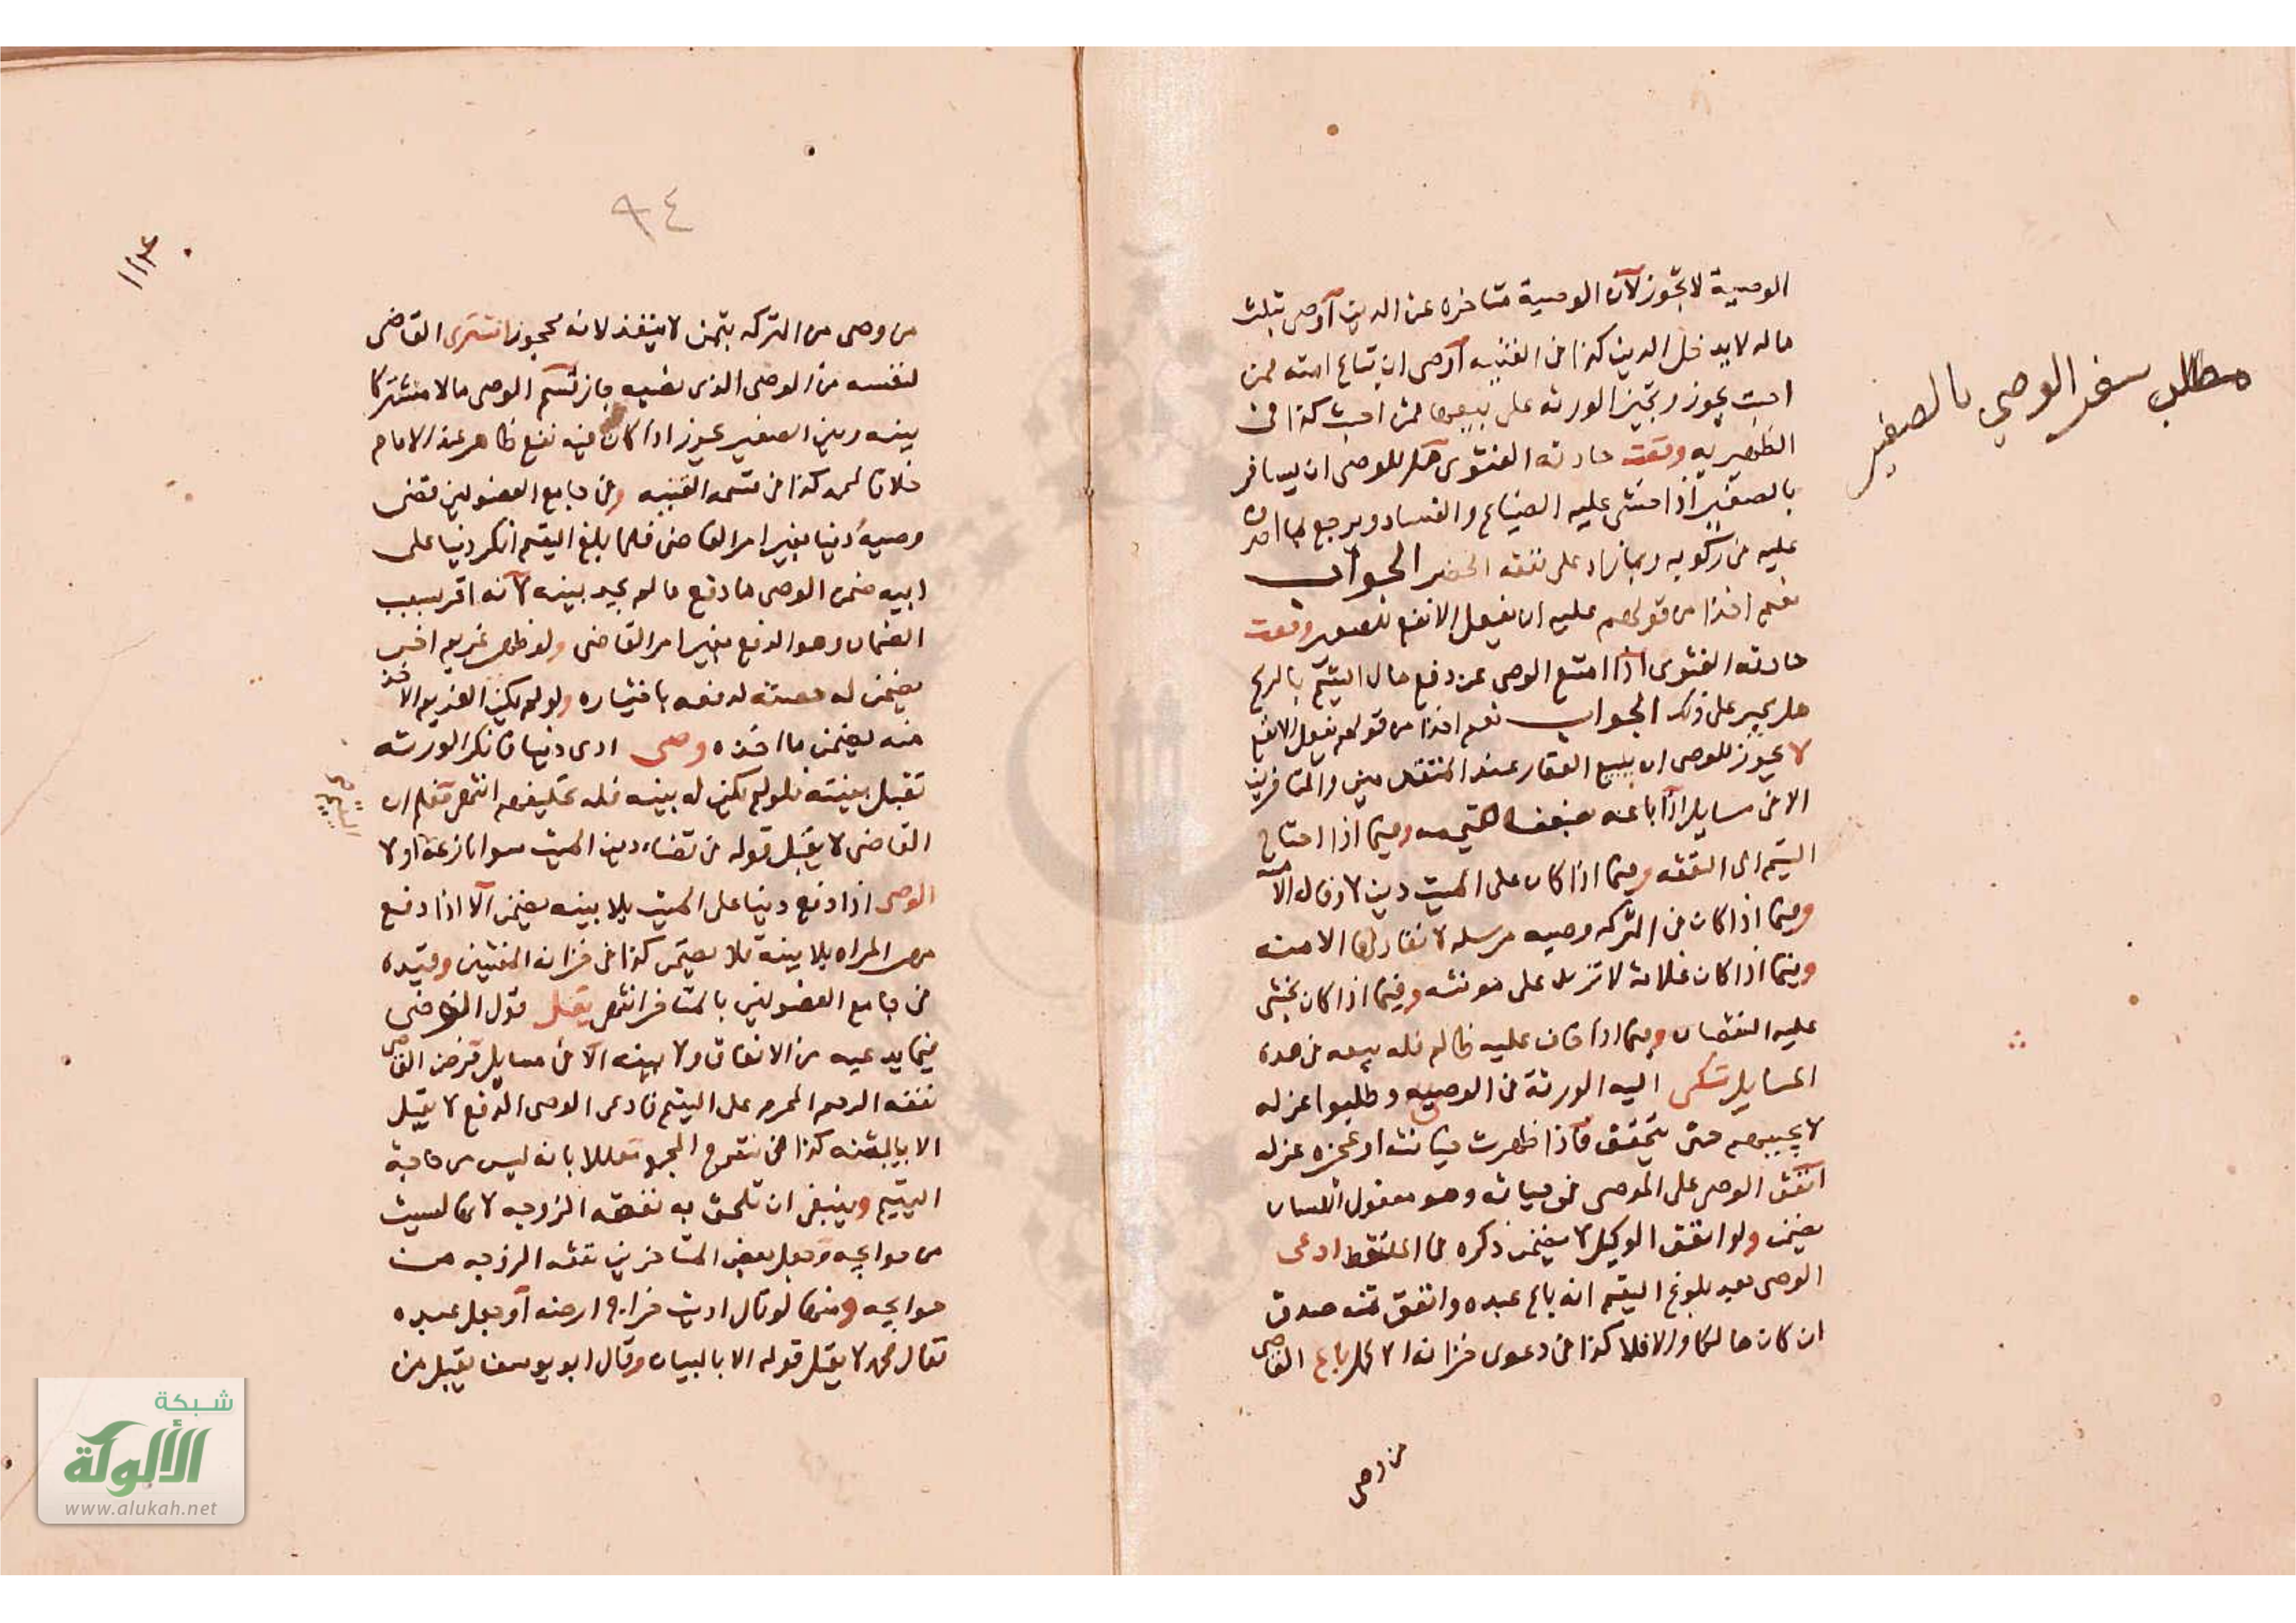 الوصية لا تجوز لان الوصية متاخرة عن الدين اوصى بثلث
ماله لا يدخل الدين كذا في القنيه اوصى ان تباع امته ممن
احبت يجوز وتجبر الورثه على بيعها ممن احبت كذا في
الظهيريه وقعت حادثه الفتوى هل للوصى ان يسافر
بالصغير اذا خشى عليه الضياع والفساد ويرجع بما اصرفه
عليه من ركوبه وبما زاد على نفقه الحضر الجواب
نعم اخذا من قولهم عليه ان يفعل الانفع للصغير وقعت
حادثه الفتوى اذا امتنع الوصى عن دفع مال اليتيم بالربح
هل يجبر على ذلك الجواب نعم اخذا من قولهم يفعل الانفع
لا يجوز للوصى ان يبيع العقار عند المتقدمين والمتاخرين
الا في مسايل اذا باعه بضعف القيمه وفيما اذا احتاج
اليتيم الى النفقه وفيما اذا كان على الميت دين لا وفاء له الا منه
وفيما اذا كان في التركه وصيه مرسله لا نفاد لها الا منه
وفيما اذا كان غلاته لا تزيد على مونته وفيما اذا كان يخشى
عليه النقصان وفيما اذا خاف عليه ظالم فله بيعه في هذه
المسايل شكى اليه الورثة من الوصيه وطلبوا عزله
لا يجيبهم حتى يتحقق فاذا ظهرت خيانته او عجزه عزله
انفق الوصى على الموصى في حياته وهو معقول اللسان
يضمن ولو انفق الوكيل لا يضمن ذكره في الملتقط ادعى
الوصى بعد بلوغ اليتيم انه باع عبده وانفق ثمنه صدق
ان كان هالكا والا فلا كذا في دعوى خزانه الاكمل باع القاضى
من وصى
مطلب سفر الوصي بالصغير
٩٤
من وصى من التركه بثمن لا ينفذ لانه محجور اشترى القاضى
لنفسه من الوصى الذى نصبه جاز قسم الوصى مالا مشتركا
بينه وبين الصغير يجوز اذا كان فيه نفع ظاهر عند الامام
خلافا لمحمد كذا في قسمه القنيه وفي جامع الفصولين قضى
وصيه دينا بغير امر القاضى فلما بلغ اليتيم انكر دينا على
ابيه ضمن الوصى ما دفع ما لم يجد بينه لانه اقر بسبب
الضمان وهو الدفع بغير امر القاضى ولو ظهر غريم اخر
يضمن له حصته لدفعه باختياره ولو لم يكن الغريم الاخذ
منه يضمن ما اخذه وصى ادى دينا فانكر الورثه
تقبل بينته فلو لم يكن له بينه فله تحليفهم انتهى فعلم ان
القاضى لا يقبل قوله في قضاء دين الميت سوا نازعه او لا
الوصى اذا دفع دينا على الميت بلا بينه يضمن الا اذا دفع
مهر المراه بلا بينة فلا يضمن كذا في خزانه المفتيين وقيده
في جامع الفصولين بالمتاخر انتهى يقبل قول القاضى
فيما يدعيه من الانفاق ولا بينه الا في مسايل فرض القاضى
نفقه الرحم المحرم على اليتيم فادعى الوصى الدفع لا يقبل
الا بالبينه كذا في المجمع معللا بانه ليس من حاجة
اليتيم وينبغى ان تلحق به نفقه الزوجه لانها ليست
من حوايجه وجعل بعض المتاخرين نفقه الزوجه من
حوايجه ومنها لو قال اديت خراج ارضه او جعل عبده
فقال محمد لا يقبل قوله الا بالبيان وقال ابو يوسف يقبل من
شبكة
الألوكة
www.alukah.net